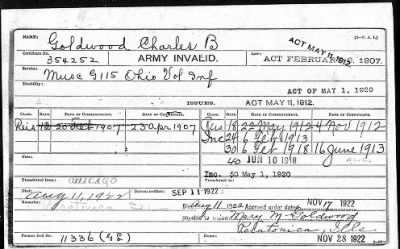 NAME: Goldwood Charles B
ACT MAY 11, 1912.
Certificate No. 354252
ARMY INVALID.
ACT FEBRUARY 6, 1907.
Service: Musc G 115 Ohio Vol Inf
Disability:
ACT OF MAY 1, 1920
ISSUES. ACT MAY 11, 1912.
CLASS. RATE. DATE OF COMMENCEMENT. DATE OF CERTIFICATE. CLASS. RATE. DATE OF COMMENCEMENT. DATE OF CERTIFICATE.
Reis 12 20 Feb 1907 23 apr 1907 Reis 18 22 May 1912 4 Nov 1912
Inc 24 6 Feb 1913
30 6 Feb 1918 16 June 1913
40 JUN 10 1918
Inc. 50 May 1, 1920
Transferred from CHICAGO
Died Aug 11, 1922 SEP 11 1922
Aug 11, 1922 Accrued order dated NOV 17 1922
Mary M. Goldwood
Pecatonica, Ills
Former Roll No. 11336 (48)
NOV 28 1922